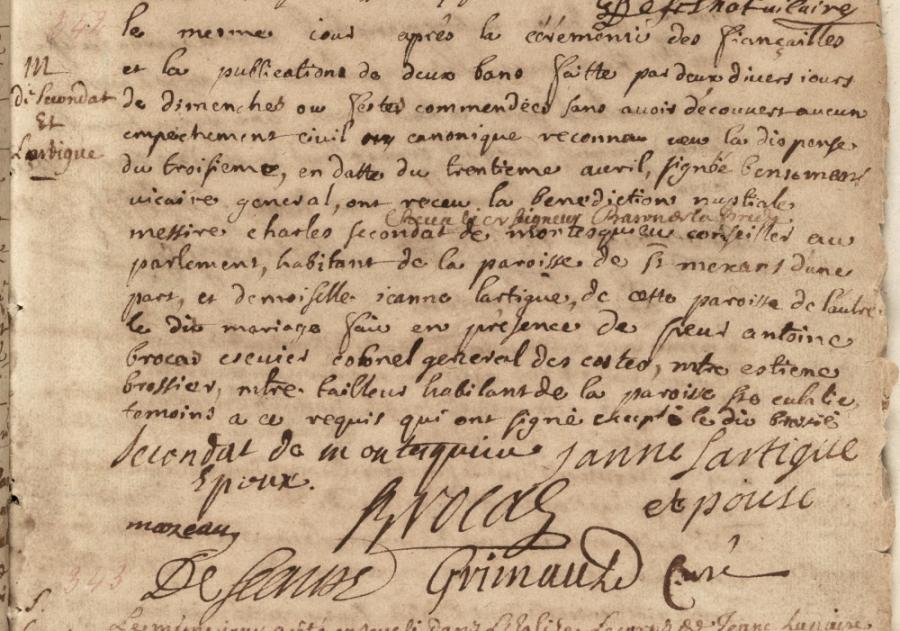 342
le mesme iour après la cérémonié des fiançailles
et la publications de deux bans faitte par deux divers iours
M
de Secondat
Et
Lartigue
de dimenches ou festes commendées sans avoir découvert aucun
empechement civil ou canonique reconneu veu la dispense
du troisieme, en datte du trentieme avril, signée
vicaire general, ont receu la benediction nuptiale
messire charles secondat de montesquieu conseiller au
parlement, habitant de la paroisse de st merans d'une
part, et demoiselle ieanne lartigue, de cette paroisse de l'autre
le dit mariage fait en présence de sieur antoine
brocas escuier colonel general des costes, mtre estiene
brossier, mtre tailleur habitant de la paroisse ste eulalie
temoins a ce requis qui ont signé excepté le dit brossié
secondat de montesquieu janne lartigue
Epoux. et pouse
Brocas
mazeau
343
Grimaud Curé